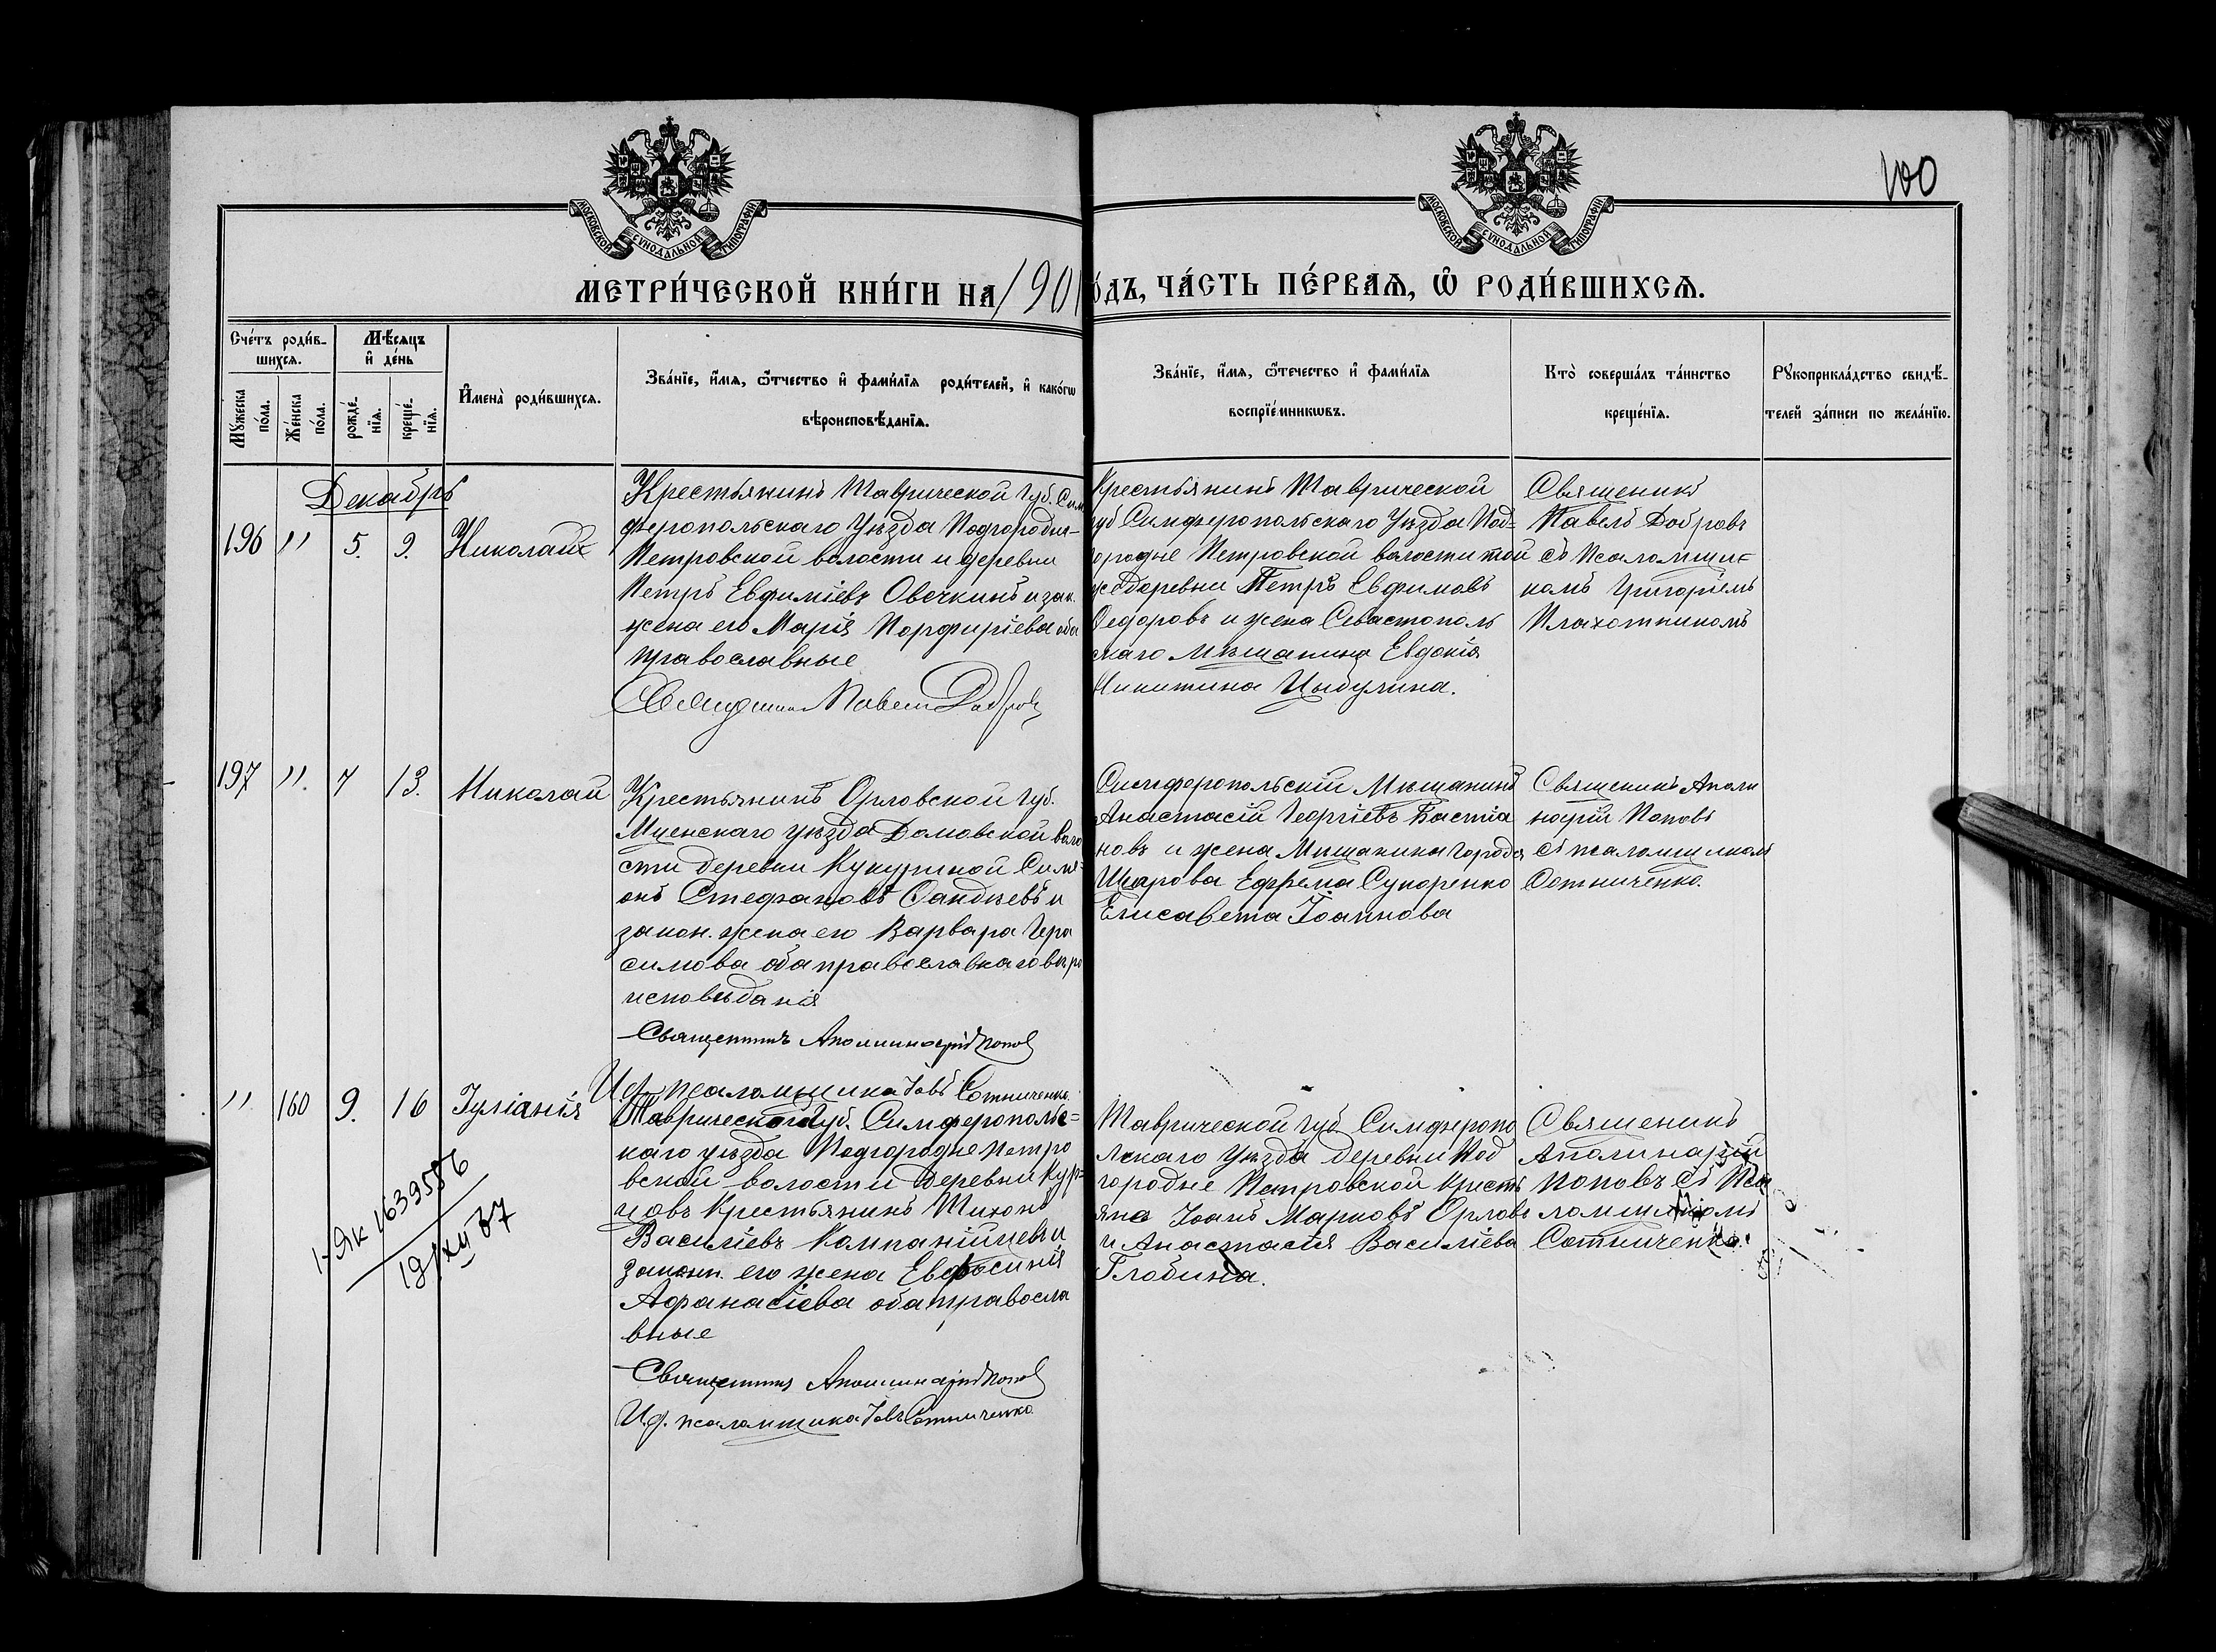 100
МОСКОВСКОЙ СѴНОДАЛЬНОЙ ТИПОГРАФІИ
МОСКОВСКОЙ СѴНОДАЛЬНОЙ ТИПОГРАФІИ
МЕТРИ́ЧЕСКОЙ КНИ́ГИ НА 1901
О́ДЪ, ЧА́СТЬ ПЕ́РВАѦ, Ѡ҆ РОДИ́ВШИХСѦ.
Сче́тъ роди́в-
шихсѧ.
Мѣ́сѧцъ
и҆ де́нь
Мꙋ́жеска
по́ла.
Же́нска
по́ла.
рожде́-
нїѧ.
креще́-
нїѧ.
И҆мена̀ роди́вшихсѧ.
Зва́нїе, и҆́мѧ, ѻ҆́тчество и҆ фами́лїѧ роди́телей, и҆ како́гѡ
вѣроисповѣ́данїѧ.
Зва́нїе, и҆́мѧ, ѻ҆́течество и҆ фами́лїѧ
воспрїе́мникѡвъ.
Кто̀ соверша́лъ та́инство
креще́нїѧ.
Рꙋкоприкла́дство свидѣ́-
телей за́писи по жела́нїю.
Декабрь
196 " 5. 9. Николай
Крестьянинъ Таврической Губ. Сим
феропольскаго Уѣзда Подгородне-
Петровской волости и деревни
Петръ Евфиміевъ Овечкинъ и зак.
жена его Марія Порфиріева оба
православные
Священник Павел Добров
Крестьянинъ Таврической
губ Симферопольскаго Уѣзда Под=
городне Петровской волости той
же деревни Петръ Евфимовъ
Федоровъ и жена Севастополь
скаго Мѣщанина Евдокія
Никитина Цыбулина.
Священикъ
Павелъ Добровъ
съ Псаломщи=
комъ Григоріемъ
Плахотникомъ
197 ". 7 13. Николай
Крестьянинъ Орловской Губ.
Мценскаго уѣзда Домовской воло
сти деревни Кукуриной Симе=
онъ Стефановъ Сандѣевъ и
закон. жена его Варвара Гера
симова оба православнаго вѣро
исповѣданія
Священникъ Аполлинарій Попов
И. ф. псаломщика Іовъ Сотниченко.
Симферопольскій Мѣщанинъ
Анастасій Георгіевъ Кастіа
новъ и жена Мѣщанина Города
Шарова Ефрема Сукоренко
Елисавета Іоаннова
Священикъ Аполи
нарій Поповъ
съ псаломщикомъ
Сотниченко.
" 160 9. 16 Іуліанія
Таврической Губ. Симферополь=
каго уѣзда Подгородне Петро
вской волости деревни Кур=
цовъ Крестьянинъ Тихонъ
Василіевъ Компанійцевъ и
законн. его жена Евфросинія
Афанасіева оба правосла
вные
Священникъ Аполлинарій Попов
И. ф. псаломщика Іовъ Сотниченко
Таврической Губ Симферопо
льскаго Уѣзда деревни Под
городне Петровской Кресть
яне Іоанъ Марковъ Орловъ
и Анастасія Василіева
Глобина.
Священикъ
Аполинарій
Поповъ съ Пса
ломщикомъ
Сотниченко.
1-ЯК 1639586
19/XII 37